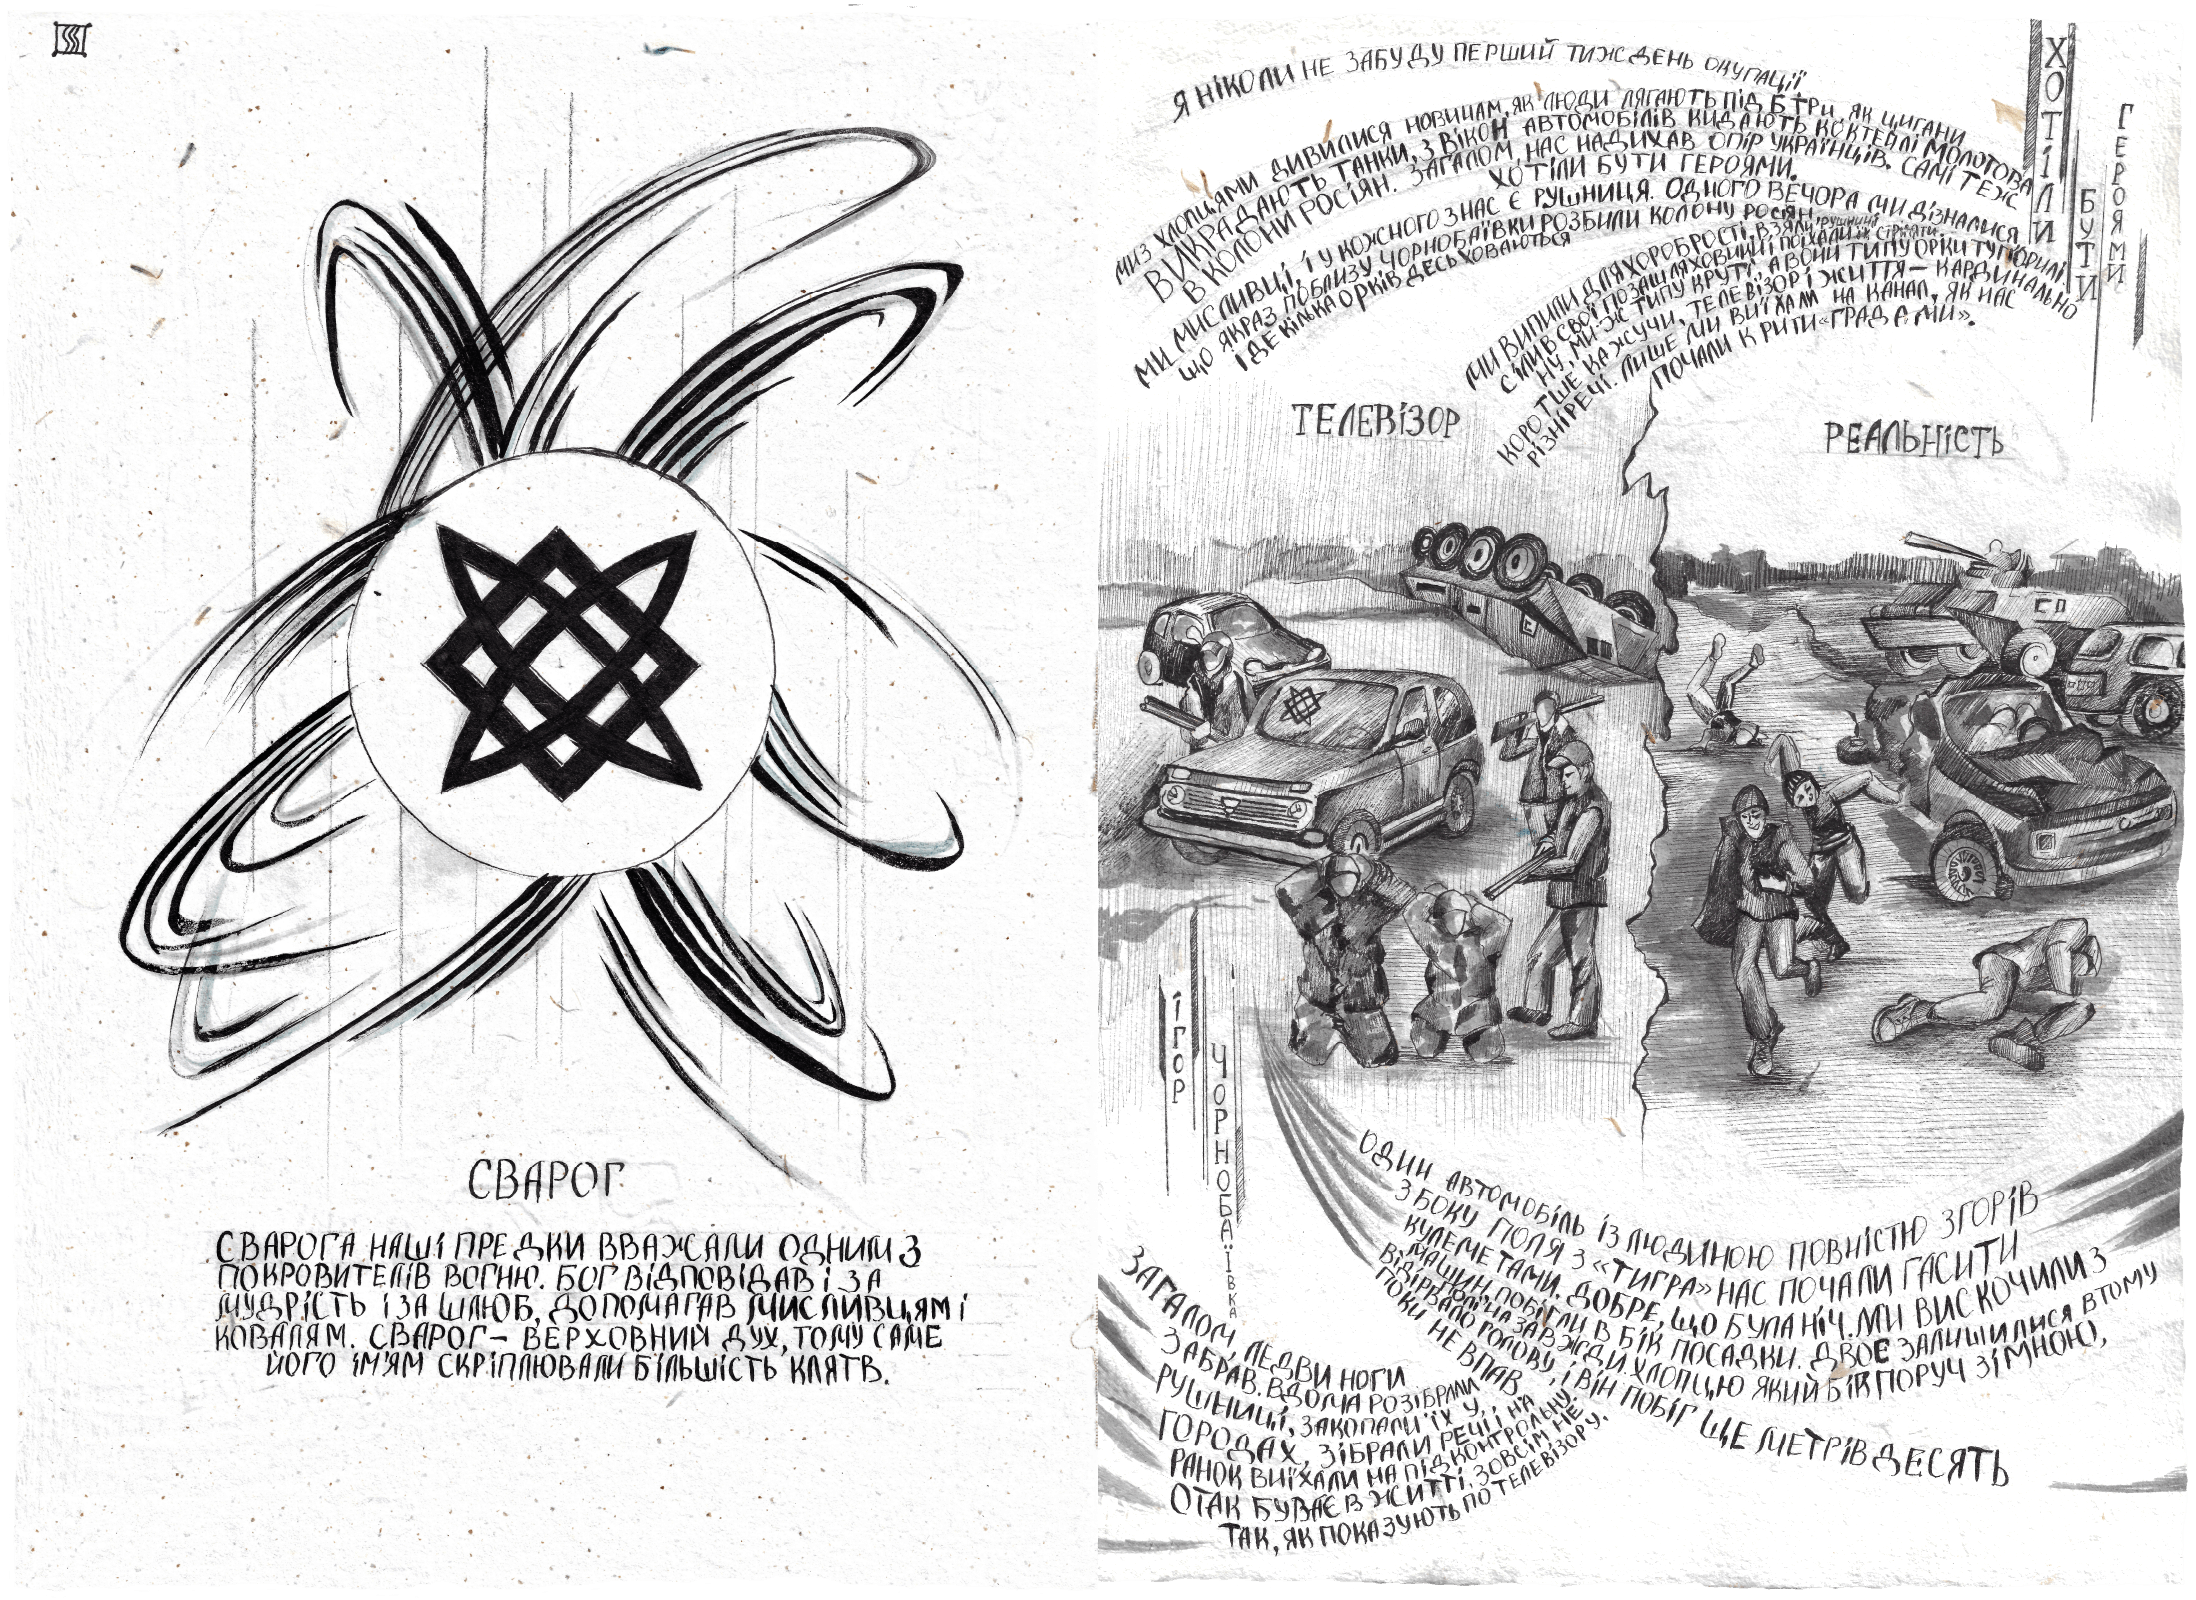 СВАРОГ
СВАРОГА НАШІ ПРЕДКИ ВВАЖАЛИ ОДНИМ З
ПОКРОВИТЕЛІВ ВОГНЮ. БОГ ВІДПОВІДАВ І ЗА
МУДРІСТЬ І ЗА ШЛЮБ, ДОПОМАГАВ МИСЛИВЦЯМ І
КОВАЛЯМ. СВАРОГ – ВЕРХОВНИЙ ДУХ, ТОМУ САМЕ
ЙОГО ІМ'ЯМ СКРІПЛЮВАЛИ БІЛЬШІСТЬ КЛЯТВ.
ХОТІЛИ
БУТИ
ГЕРОЯМИ
Я НІКОЛИ НЕ ЗАБУДУ ПЕРШИЙ ТИЖДЕНЬ ОКУПАЦІЇ
МИ З ХЛОПЦЯМИ ДИВИЛИСЯ НОВИНАМ, ЯК ЛЮДИ ЛЯГАЮТЬ ПІД БТРИ, ЯК ЦИГАНИ
ВИКРАДАЮТЬ ТАНКИ, З ВІКОН АВТОМОБІЛІВ КИДАЮТЬ КОКТЕЙЛІ МОЛОТОВА
В КОЛОНИ РОСІЯН. ЗАГАЛОМ, НАС НАДИХАВ ОПІР УКРАЇНЦІВ. САМІ ТЕЖ
ХОТІЛИ БУТИ ГЕРОЯМИ.
МИ МИСЛИВЦІ, І У КОЖНОГО З НАС Є РУШНИЦЯ. ОДНОГО ВЕЧОРА МИ ДІЗНАЛИСЯ
ЩО ЯКРАЗ ПОБЛИЗУ ЧОРНОБАЇВКИ РОЗБИЛИ КОЛОНУ РОСІЯН
І ДЕ КІЛЬКА ОРКІВ ДЕСЬ ХОВАЮТЬСЯ
МИ ВИПИЛИ ДЛЯ ХОРОБРОСТІ, ВЗЯЛИ РУШНИЦІ
СІЛИ В СВОЇ ПОЗАШЛЯХОВИКИ І ПОЇХАЛИ ЇХ СТРІЛЯТИ.
НУ, МИ Ж ТИПУ КРУТІ, А ВОНИ ТИПУ ОРКИ ТУПОРИЛІ
КОРОТШЕ КАЖУЧИ, ТЕЛЕВІЗОР І ЖИТТЯ – КАРДИНАЛЬНО
РІЗНІ РЕЧІ. ЛИШЕ МИ ВИЇХАЛИ НА КАНАЛ, ЯК НАС
ПОЧАЛИ КРИТИ «ГРАДАМИ».
ТЕЛЕВІЗОР
РЕАЛЬНІСТЬ
ІГОР
ЧОРНОБАЇВКА
ОДИН АВТОМОБІЛЬ ІЗ ЛЮДИНОЮ ПОВНІСТЮ ЗГОРІВ
З БОКУ ПОЛЯ З «ТИГРА» НАС ПОЧАЛИ ГАСИТИ
КУЛЕМЕТАМИ. ДОБРЕ, ЩО БУЛА НІЧ. МИ ВИСКОЧИЛИ З
МАШИН, ПОБІГЛИ В БІК ПОСАДКИ. ДВОЄ ЗАЛИШИЛИСЯ В ТОМУ
ПОЛІ НАЗАВЖДИ ХЛОПЦЮ ЯКИЙ БІГ ПОРУЧ ЗІ МНОЮ,
ВІДІРВАЛО ГОЛОВУ, І ВІН ПОБІГ ЩЕ МЕТРІВ ДЕСЯТЬ
ПОКИ НЕ ВПАВ
ЗАГАЛОМ, ЛЕДВИ НОГИ
ЗАБРАВ. ВДОМА РОЗІБРАЛИ
РУШНИЦІ, ЗАКОПАЛИ ЇХ У
ГОРОДАХ, ЗІБРАЛИ РЕЧІ І НА
РАНОК ВИЇХАЛИ НА ПІДКОНТРОЛЬНУ.
ОТАК БУВАЄ В ЖИТТІ. ЗОВСІМ НЕ
ТАК, ЯК ПОКАЗУЮТЬ ПО ТЕЛЕВІЗОРУ.